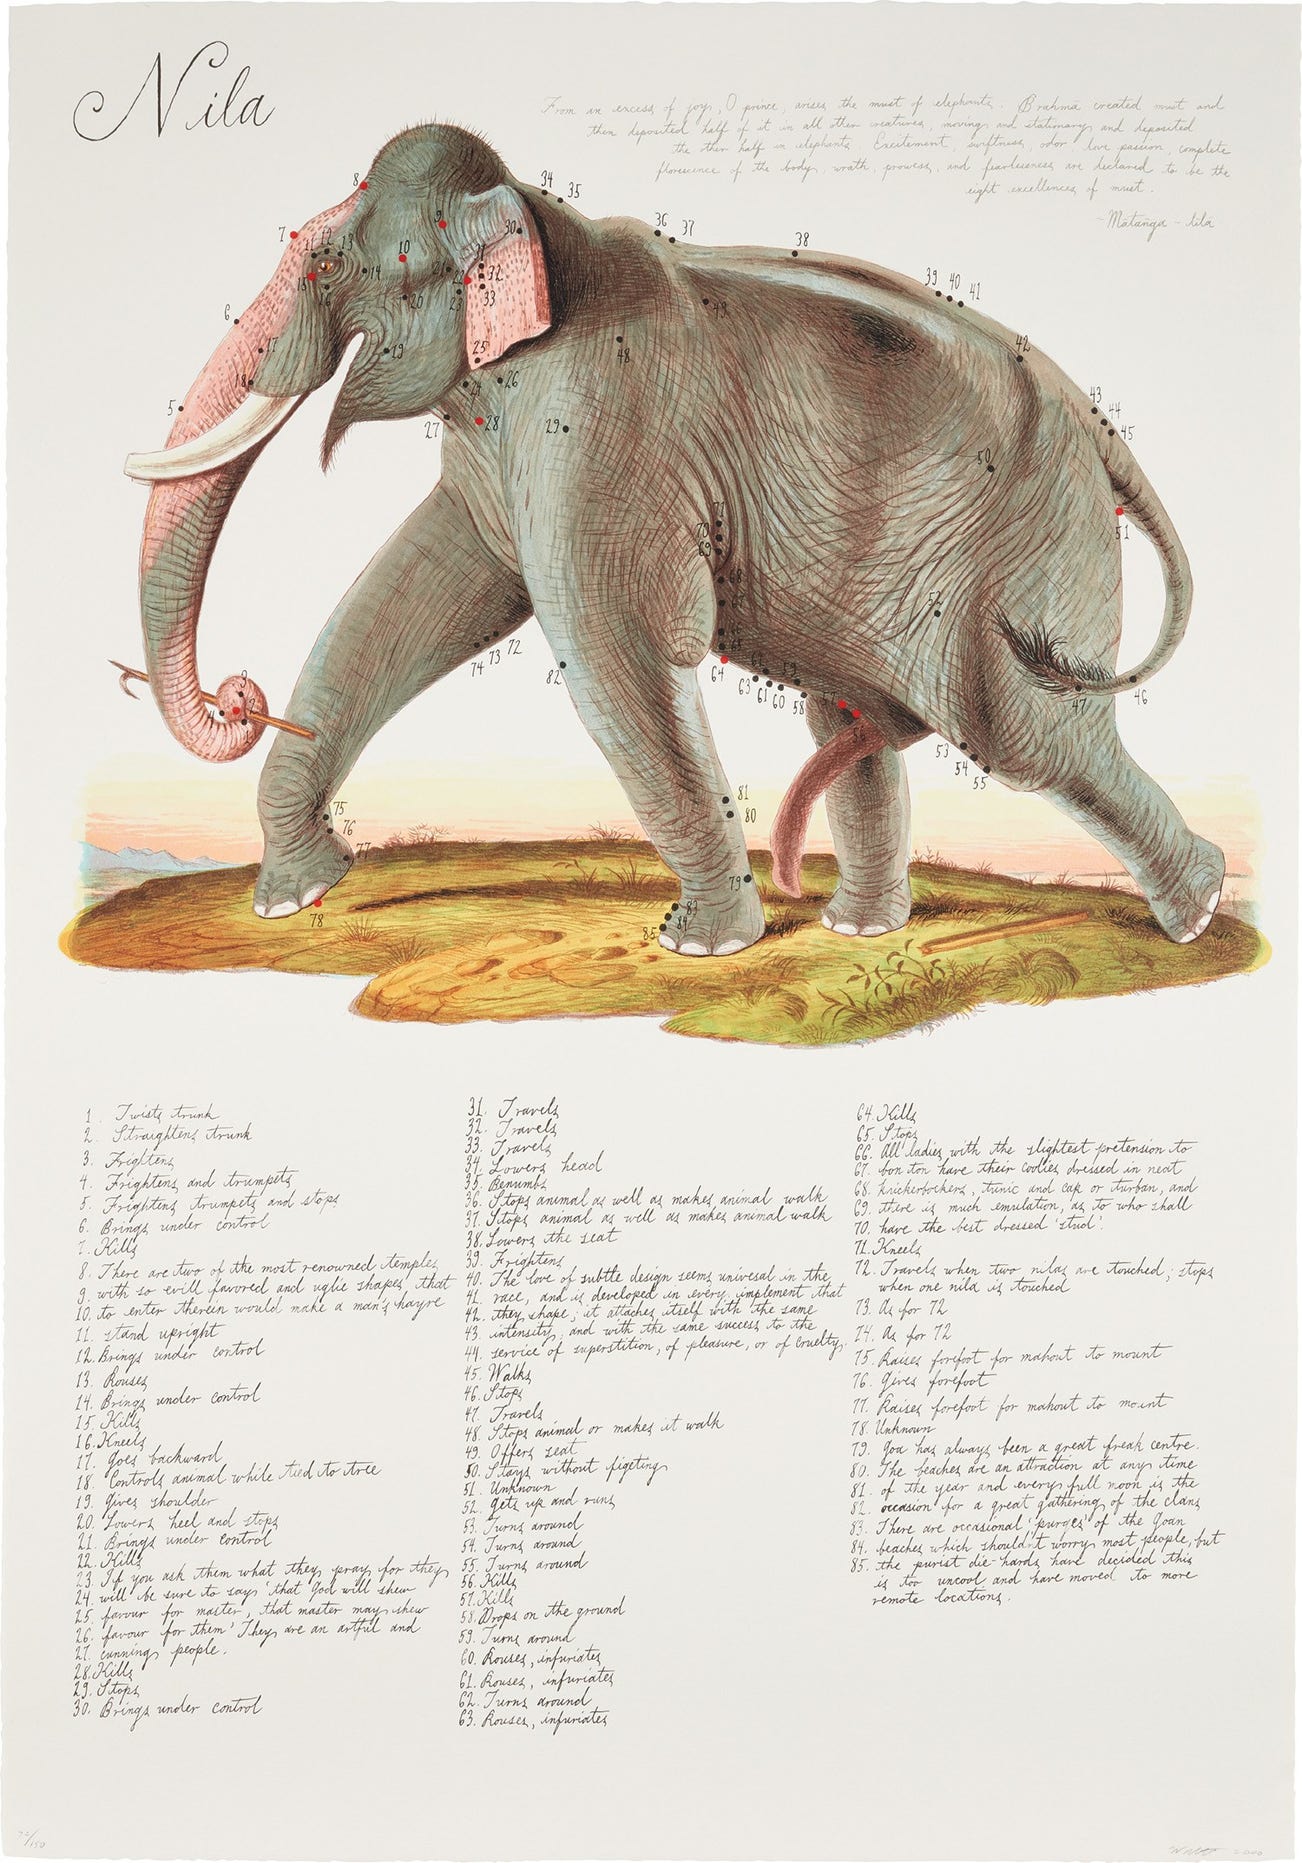 Nila
From an excess of joy, O prince, arises the must of elephants. Brahma created must and
then deposited half of it in all other creatures, moving and stationary and deposited
the other half in elephants. Excitement, swiftness, odor, love passion, complete
florescence of the body, wrath, prowess, and fearlessness are declared to be the
eight excellences of must.
- Mātaṅga - līlā
1. Twists trunk
2. Straightens trunk
3. Frightens
4. Frightens and trumpets
5. Frightens trumpets and stops
6. Brings under control
7. Kills
8. There are two of the most renowned temples
9. with so evill favored and uglie shapes, that
10. to enter therein would make a man's hayre
11. stand upright
12. Brings under control
13. Rouses
14. Brings under control
15. Kills
16. Kneels
17. Goes backward
18. Controls animal while tied to tree
19. Gives shoulder
20. Lowers heel and stops
21. Brings under control
22. Kills
23. If you ask them what they pray for they
24. will be sure to say 'that God will shew
25. favour for master, that master may shew
26. favour for them' They are an artful and
27. cunning people.
28. Kills
29. Stops
30. Brings under control
31. Travels
32. Travels
33. Travels
34. Lowers head
35. Benumbs
36. Stops animal as well as makes animal walk
37. Stops animal as well as makes animal walk
38. Lowers the seat
39. Frightens
40. The love of subtle design seems univesal in the
41. race, and is developed in every implement that
42. they shape; it attaches itself with the same
43. intensity, and with the same success to the
44. service of superstition, of pleasure, or of cruelty.
45. Walks
46. Stops
47. Travels
48. Stops animal or makes it walk
49. Offers seat
50. Stays without figeting
51. Unknown
52. Gets up and runs
53. Turns around
54. Turns around
55. Turns around
56. Kills
57. Kills
58. Drops on the ground
59. Turns around
60. Rouses, infuriates
61. Rouses, infuriates
62. Turns around
63. Rouses, infuriates
64. Kills
65. Stops
66. All ladies with the slightest pretension to
67. bon ton have their coolies dressed in neat
68. knickerbockers, tunic and cap or turban, and
69. there is much emulation, as to who shall
70. have the best dressed 'stud'.
71. Kneels
72. Travels when two nilas are touched; stops
when one nila is touched
73. As for 72
74. As for 72
75. Raises forefoot for mahout to mount
76. Gives forefoot
77. Raises forefoot for mahout to mount
78. Unknown
79. Goa has always been a great freak centre.
80. The beaches are an attraction at any time
81. of the year and every full moon is the
82. occasion for a great gathering of the clans
83. There are occasional 'purges' of the Goan
84. beaches which shouldn't worry most people, but
85. the purist die-hards have decided this
is too uncool and have moved to more
remote locations.
2000